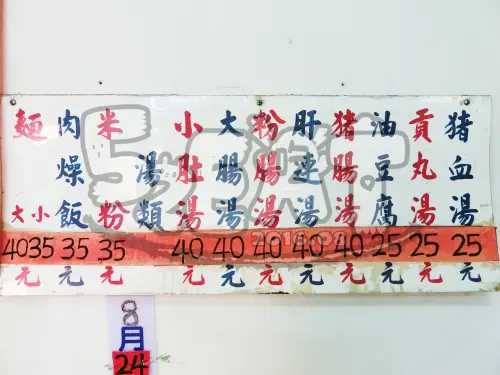 麵 大小 4035元
肉燥飯 35元
米粉 35元
湯類
小肚湯 40元
大腸湯 40元
粉腸湯 40元
肝連湯 40元
猪腸湯 40元
油豆腐 25元
貢丸湯 25元
猪血湯 25元
8月
24